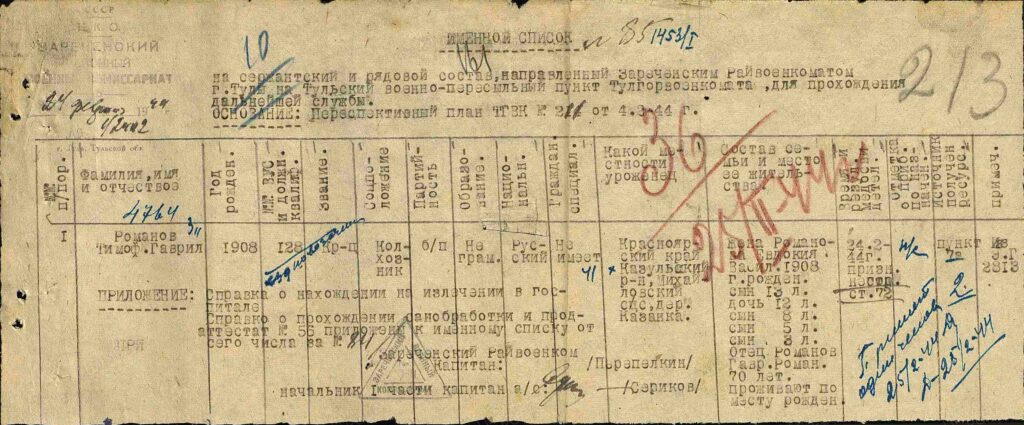 СССР
Н.К.О.
ЗАРЕЧЕНСКИЙ
КОМИССАРИАТ
24 февраля 1944
4/2402
г. Тула, Тульской обл.
10
161
ИМЕННОЙ СПИСОК № 85 1453/I
213
на сержантский и рядовой состав, направленный Зареченским Райвоенкоматом
г. Тулы на Тульский военно-пересыльный пункт Тулгорвоенкомата, для прохождения
дальнейшей службы.
ОСНОВАНИЕ: Переспективный план ТГВК № 211 от 4.2.44 г.
36
25/II-44
№№ п/пор.
Фамилия, имя и отчество
Год рожден.
№№ ВУС и должн. квалиф.
Звание.
Соцпо-ложение
Партий-ность
Образо-вание.
Нацио-нальн.
Граждан. специал.
Какой ме-стности уроженец
Состав се-мьи и место ее житель-ства
Отметка о приб.
Источник получен ресурс.
примеч.
4764
I
Романов
Тимоф. Гаврил
1908
128
Кр-ц
Кол-
хоз-
ник
б/п
Не
грам.
Рус-
ский
Не
имеет
Краснояр-
ский край
Казульский
р-н, Михай-
ловский
с/с, дер.
Казанка.
жена Романо-
ва Евдокия
Васил. 1908
г. рожден.
сын 13 л.
дочь 12 л.
сын 8 л.
сын 5 л.
сын 3 л.
Отец Романов
Гавр. Роман.
70 лет.
проживают по
месту рожден.
24.2-
44г.
призн.
нестр.
ст. 72
н/к
пункт
7а
Из
Э.Г
2813
ПРИЛОЖЕНИЕ: Справка о нахождении на излечении в гос-
питале
Справко о прохождении санобработки и прод-
аттестат № 56 приложены к именному списку от
сего числа за №
Зареченский Райвоенком
Капитан: /Перепелкин/
начальник I части капитан а/с: /Сериков/
2.
25/2-44
25/2-44